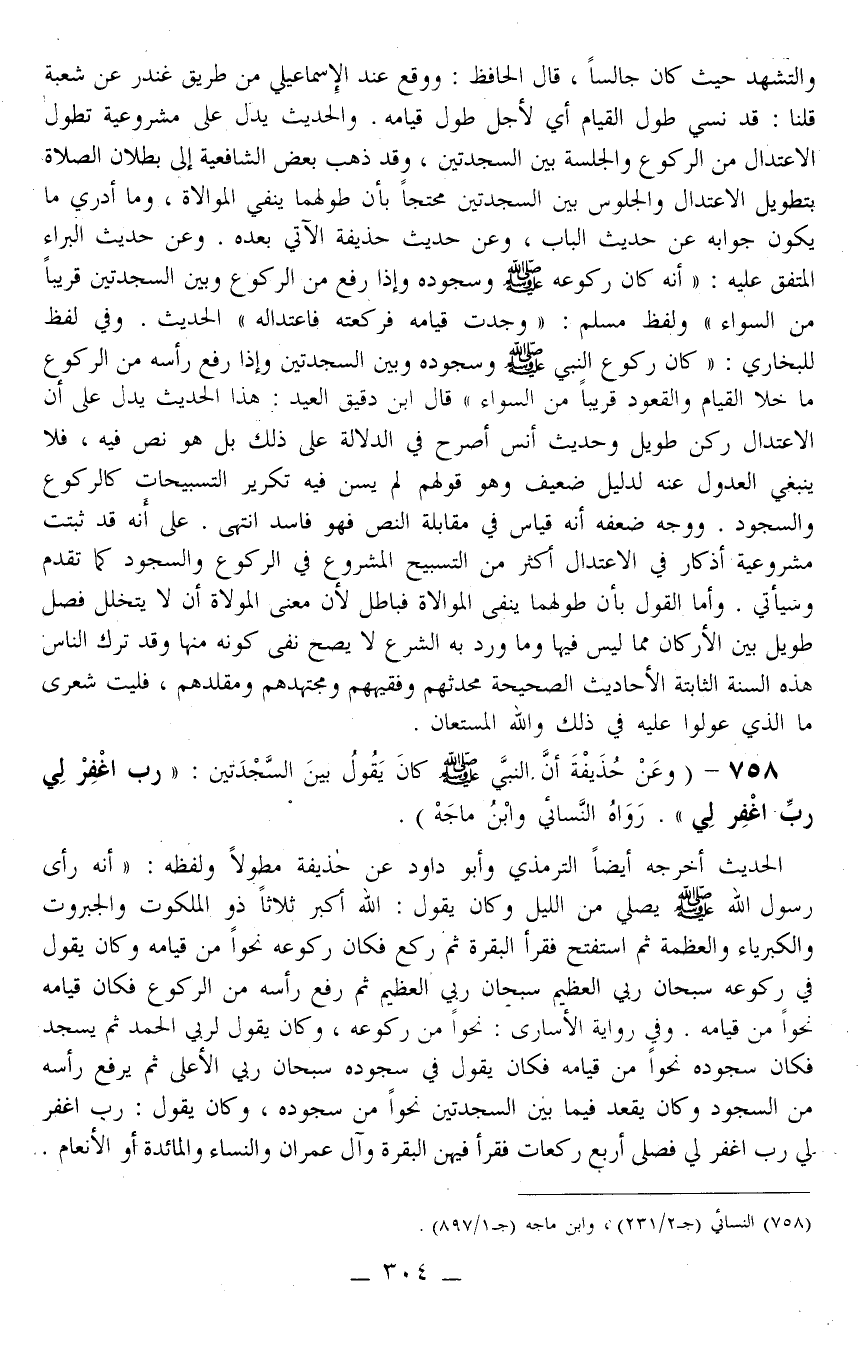 والتشهد حيث كان جالساً ، قال الحافظ : ووقع عند الإسماعيلي من طريق غندر عن شعبة
قلنا : قد نسي طول القيام أي لأجل طول قيامه . والحديث يدل على مشروعية تطول
الاعتدال من الركوع والجلسة بين السجدتين ، وقد ذهب بعض الشافعية إلى بطلان الصلاة
بتطويل الاعتدال والجلوس بين السجدتين محتجاً بأن طولهما ينفي الموالاة ، وما أدري ما
يكون جوابه عن حديث الباب ، وعن حديث حذيفة الآتي بعده . وعن حديث البراء
المتفق عليه : « أنه كان ركوعه ﷺ وسجوده وإذا رفع من الركوع وبين السجدتين قريباً
من السواء » ولفظ مسلم : « وجدت قيامه فركعته فاعتداله » الحديث . وفي لفظ
للبخاري : « كان ركوع النبي ﷺ وسجوده وبين السجدتين وإذا رفع رأسه من الركوع
ما خلا القيام والقعود قريباً من السواء » قال ابن دقيق العيد : هذا الحديث يدل على أن
الاعتدال ركن طويل وحديث أنس أصرح في الدلالة على ذلك بل هو نص فيه ، فلا
ينبغي العدول عنه لدليل ضعيف وهو قولهم لم يسن فيه تكرير التسبيحات كالركوع
والسجود . ووجه ضعفه أنه قياس في مقابلة النص فهو فاسد انتهى . على أنه قد ثبتت
مشروعية أذكار في الاعتدال أكثر من التسبيح المشروع في الركوع والسجود كما تقدم
وسيأتي . وأما القول بأن طولهما ينفى الموالاة فباطل لأن معنى المولاة أن لا يتخلل فصل
طويل بين الأركان مما ليس فيها وما ورد به الشرع لا يصح نفى كونه منها وقد ترك الناس
هذه السنة الثابتة الأحاديث الصحيحة محدثهم وفقيههم ومجتهدهم ومقلدهم ، فليت شعرى
ما الذي عولوا عليه في ذلك والله المستعان .
٧٥٨ – ( وعَنْ حُذَيفْةَ أنَّ النبيَّ ﷺ كانَ يَقُولُ بينَ السَّجْدَتين : « رب اغْفِرْ لِي
ربِّ اغْفِر لِي » . رَوَاهُ النَّسائي وابْنُ ماجَهْ ) .
الحديث أخرجه أيضاً الترمذي وأبو داود عن حذيفة مطولاً ولفظه : « أنه رأى
رسول الله ﷺ يصلي من الليل وكان يقول : الله أكبر ثلاثاً ذو الملكوت والجبروت
والكبرياء والعظمة ثم استفتح فقرأ البقرة ثم ركع فكان ركوعه نحواً من قيامه وكان يقول
في ركوعه سبحان ربي العظيم سبحان ربي العظيم ثم رفع رأسه من الركوع فكان قيامه
نحواً من قيامه . وفي رواية الأسارى : نحواً من ركوعه ، وكان يقول لربي الحمد ثم يسجد
فكان سجوده نحواً من قيامه فكان يقول في سجوده سبحان ربي الأعلى ثم يرفع رأسه
من السجود وكان يقعد فيما بين السجدتين نحواً من سجوده ، وكان يقول : رب اغفر
لي رب اغفر لي فصلى أربع ركعات فقرأ فيهن البقرة وآل عمران والنساء والمائدة أو الأنعام .
(٧٥٨) النسائي (جـ٢٣١/٢) ، وابن ماجه (جـ٨٩٧/١) .
– ٣٠٤ –